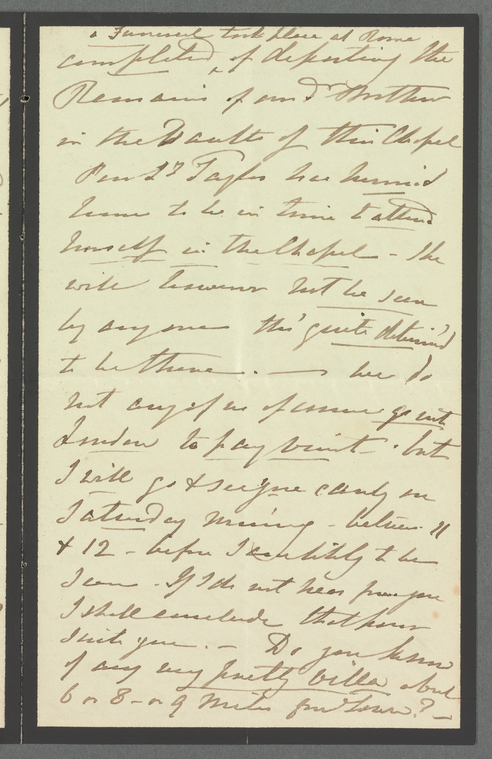 a Funeral took place at Rome
completed, of depositing the
Remains of our dr Brother
in the Vaults of this Chapel
Poor Ly Taylor has hurried
home to be in time to attend
himself in the Chapel - She
will however not be seen
by anyone tho' quite determin'd
to be there. — We do
not any of us of course go into
London to pay visits - but
I will go & see you early on
Saturday morning - between 11
& 12 - before I am likely to be
seen - If I do not hear from you
I shall conclude that hour
suits you. - Do you know
of any very pretty Villa about
6 or 8 - or 9 Miles from Town? -